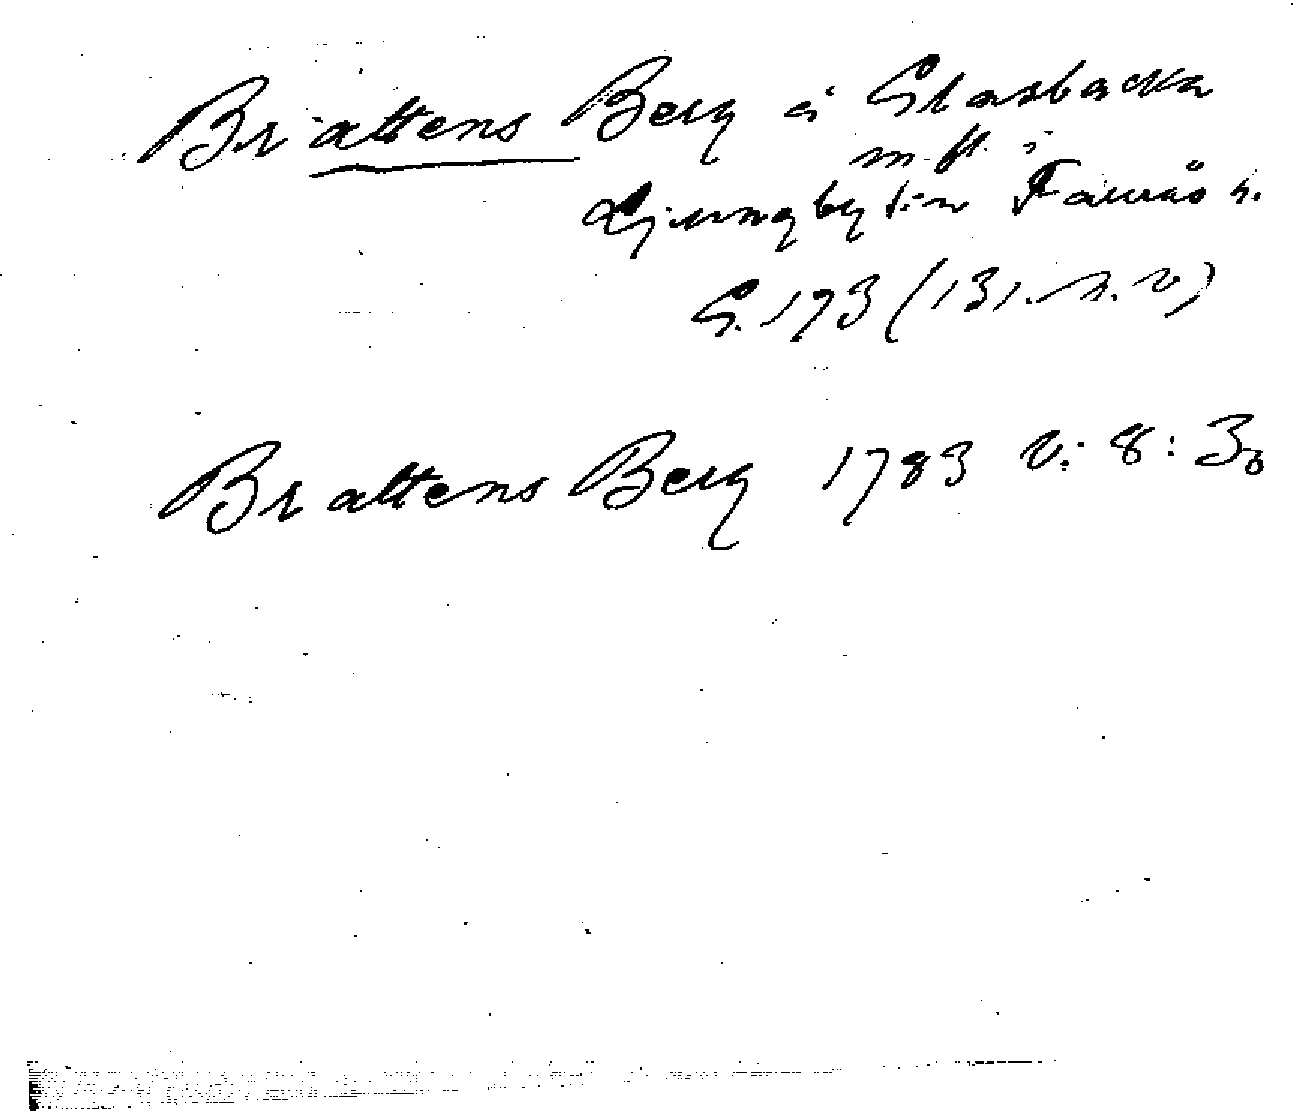 Brattens Berg å Glasbacka
m. fl. i
Ljungby s:n Faurås h.
G. 173 (131. n. v.)
Brattens Berg 1783 v: 8: 30